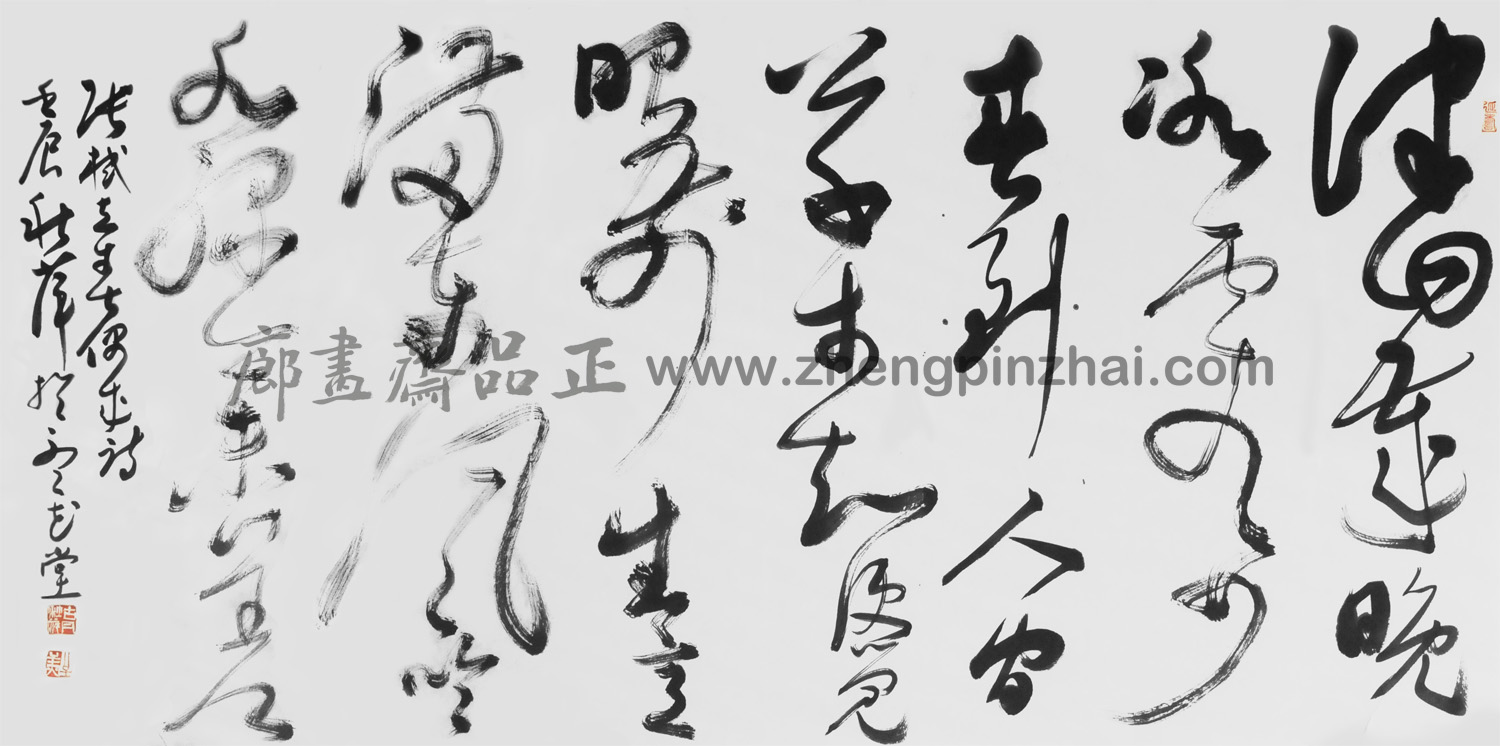 律回歲晚
冰霜少
春到人間
草木知便覺
眼前生意
滿東風吹
水綠參差
張栻立春偶成詩
壬辰秋於堂
正品齋畫廊
www.zhengpinzhai.com